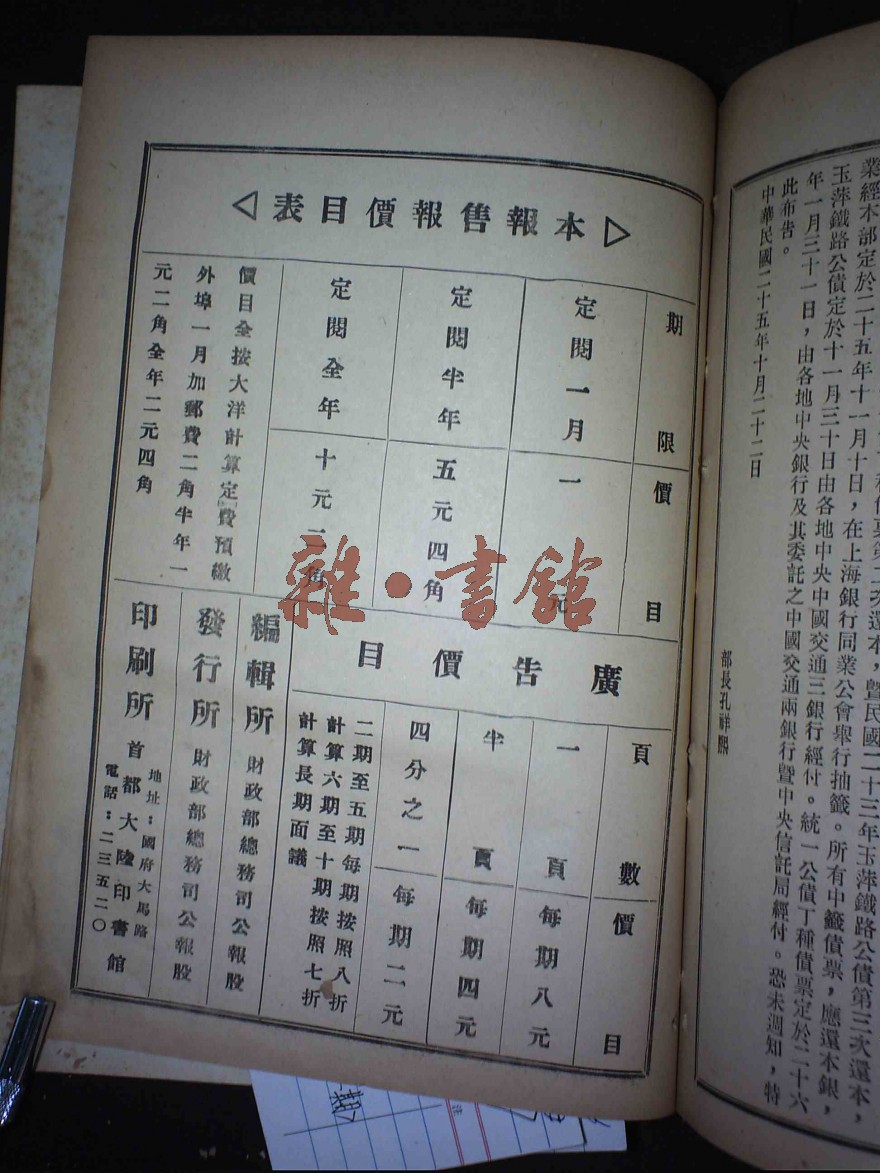 種債票第二次還本,曁民國二十三年玉萍鐵路公債第三次還本,
業經本部定於二十五年十一月十日,在上海銀行同業公會舉行抽籤。所有中籤債票,應還本銀,
玉萍鐵路公債定於十一月三十日由各地中央中國交通三銀行經付。統一公債丁種債票定於二十六
年一月三十一日,由各地中央銀行及其委託之中國交通兩銀行暨中央信託局經付。恐未週知,特
此布告。
中華民國二十五年十月二十二日
部長孔祥熙
本報售報價目表
期限 價目
定閱一月 一元
定閱半年 五元四角
定閱全年 十元二角
價目全按大洋計算定費預繳
外埠一月加郵費二角半年一
元二角全年二元四角
廣告價目
頁數 價目
一頁 每期八元
半頁 每期四元
四分之一 每期二元
二期至五期每期按照八折
計算六期至十期按照七折
計算長期面議
編輯所 財政部總務司公報股
發行所 財政部總務司公報股
印刷所 首都大陸印書館
地址:國府大馬路
電話:二三五二〇
雜·書館